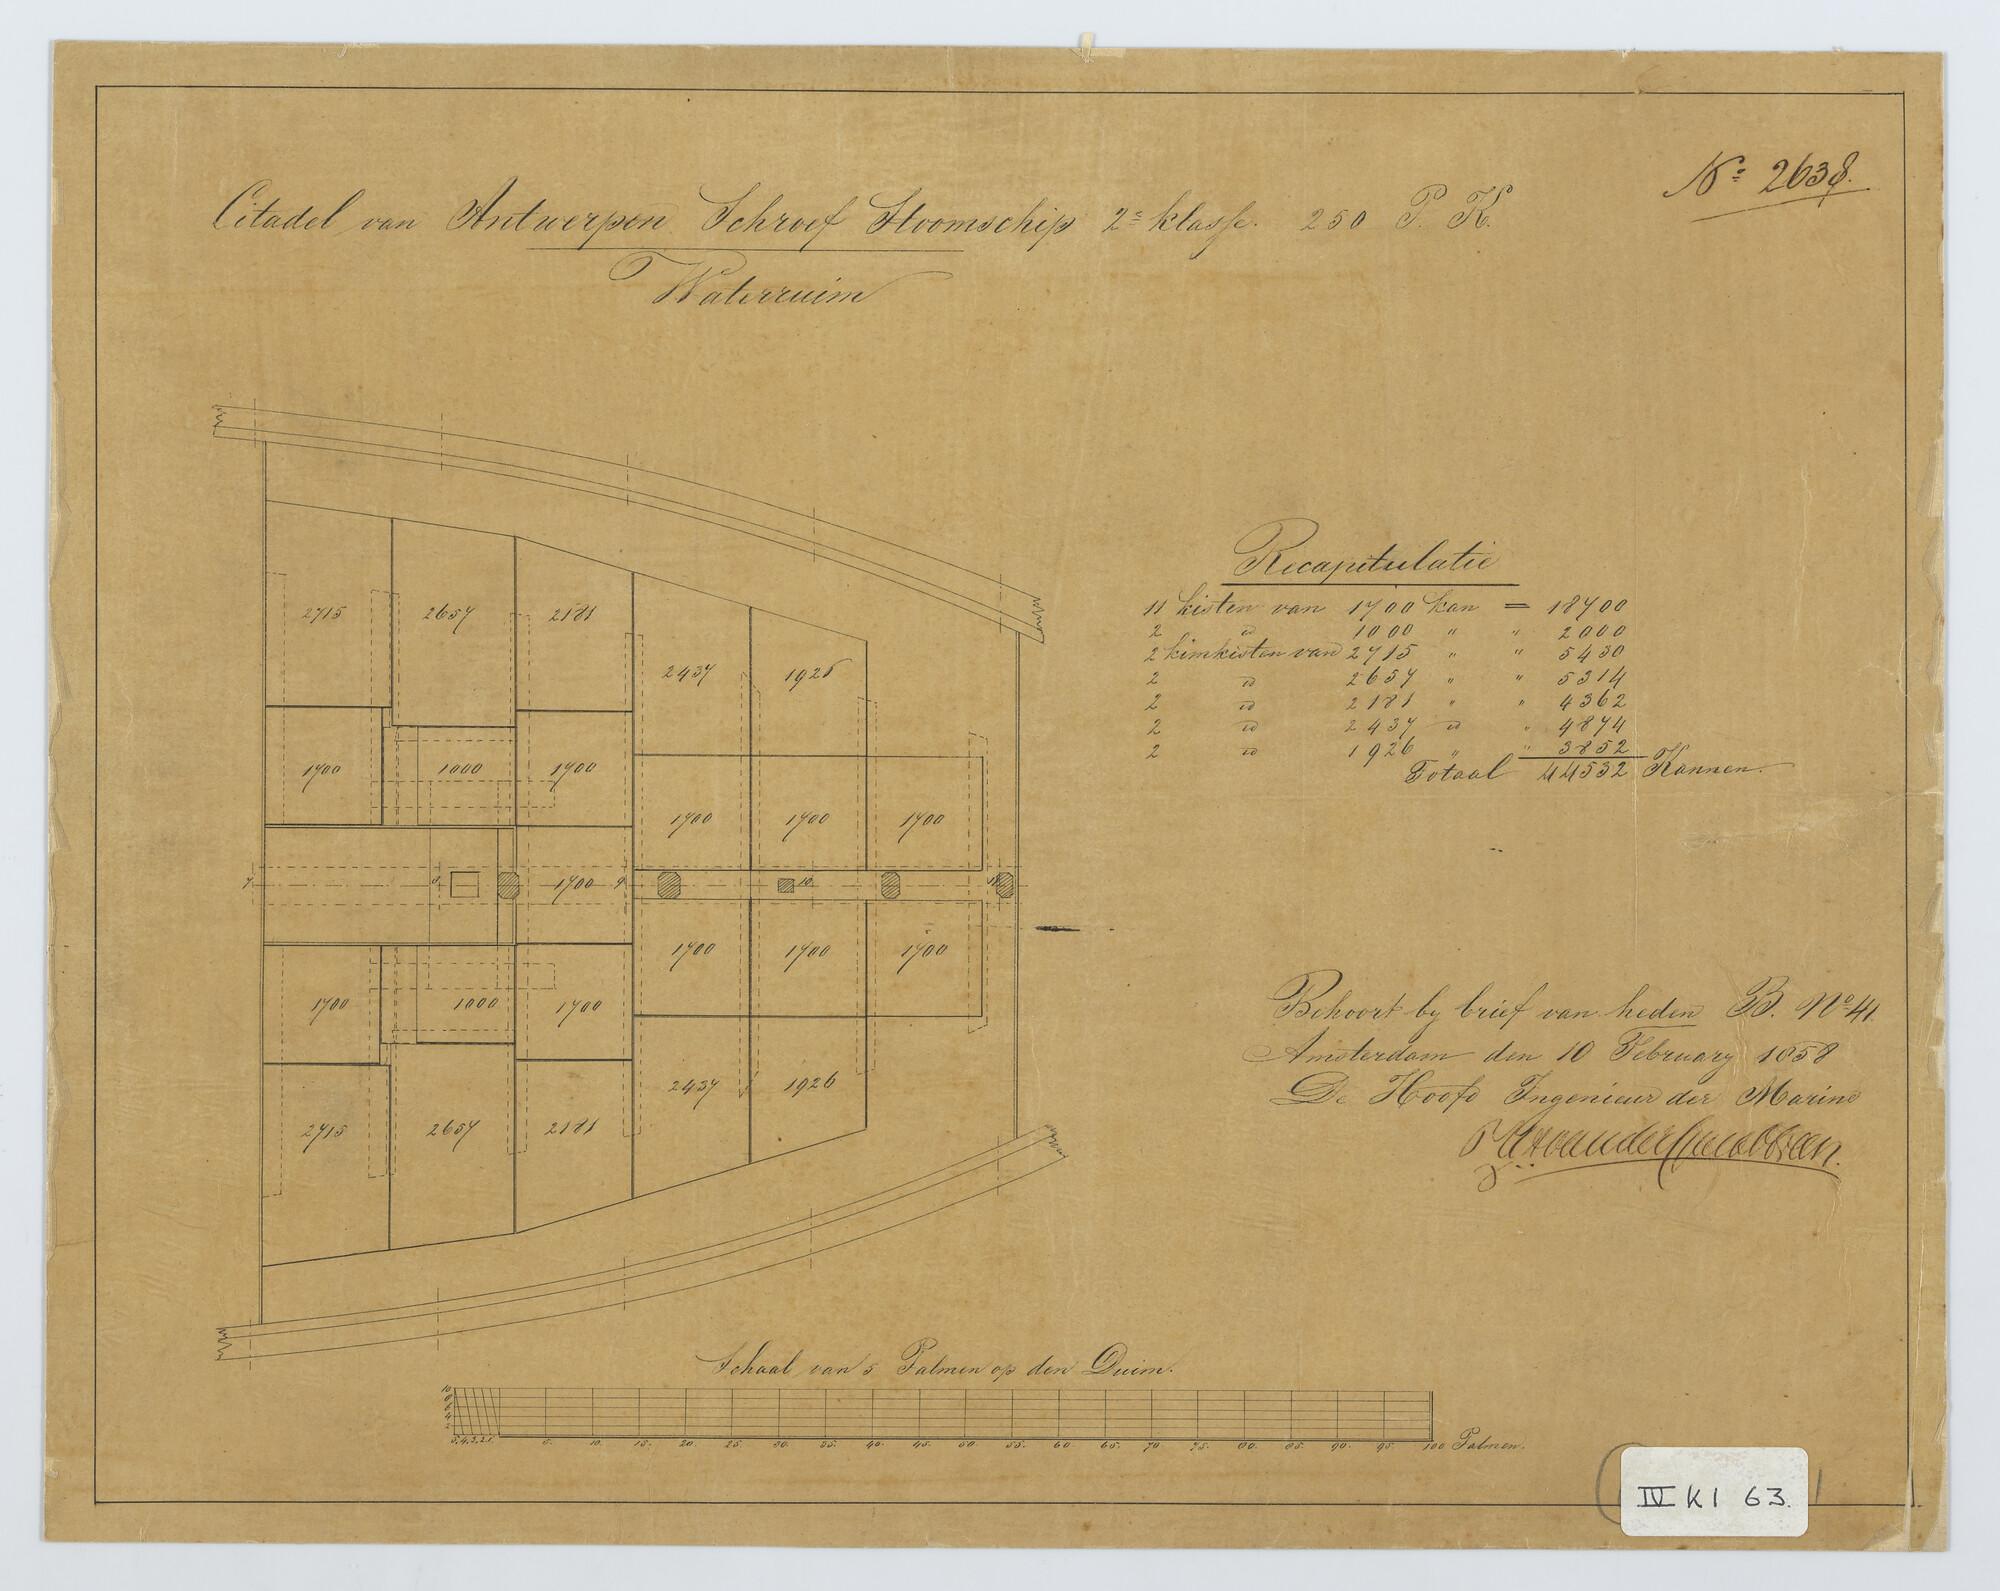 Nº 2638.
Citadel van Antwerpen Schroef Stoomschip 2e klasse. 250 P. K.
Waterruim
2715 2657 2181
2437 1926
1700 1000 1700
1700 1700 1700
7 8 1700 9 10 11
1700 1700 1700
1700 1000 1700
2437 1926
2715 2657 2181
Recapitulatie
11 kisten van 1700 kan = 18700
2 id 1000 " " 2000
2 kimkisten van 2715 " " 5430
2 id 2657 " " 5314
2 id 2181 " " 4362
2 id 2437 id " 4874
2 id 1926 " " 3852
Totaal 44532 Kannen.
Behoort by brief van heden B. Nº 41.
Amsterdam den 10 February 1858
De Hoofd Ingenieur der Marine
Schaal van 5 Palmen op den Duim.
10 8 6 4 2
5. 4. 3. 2. 1. 5. 10. 15. 20. 25. 30. 35. 40. 45. 50. 55. 60. 65. 70. 75. 80. 85. 90. 95. 100 Palmen.
IV K I 63.